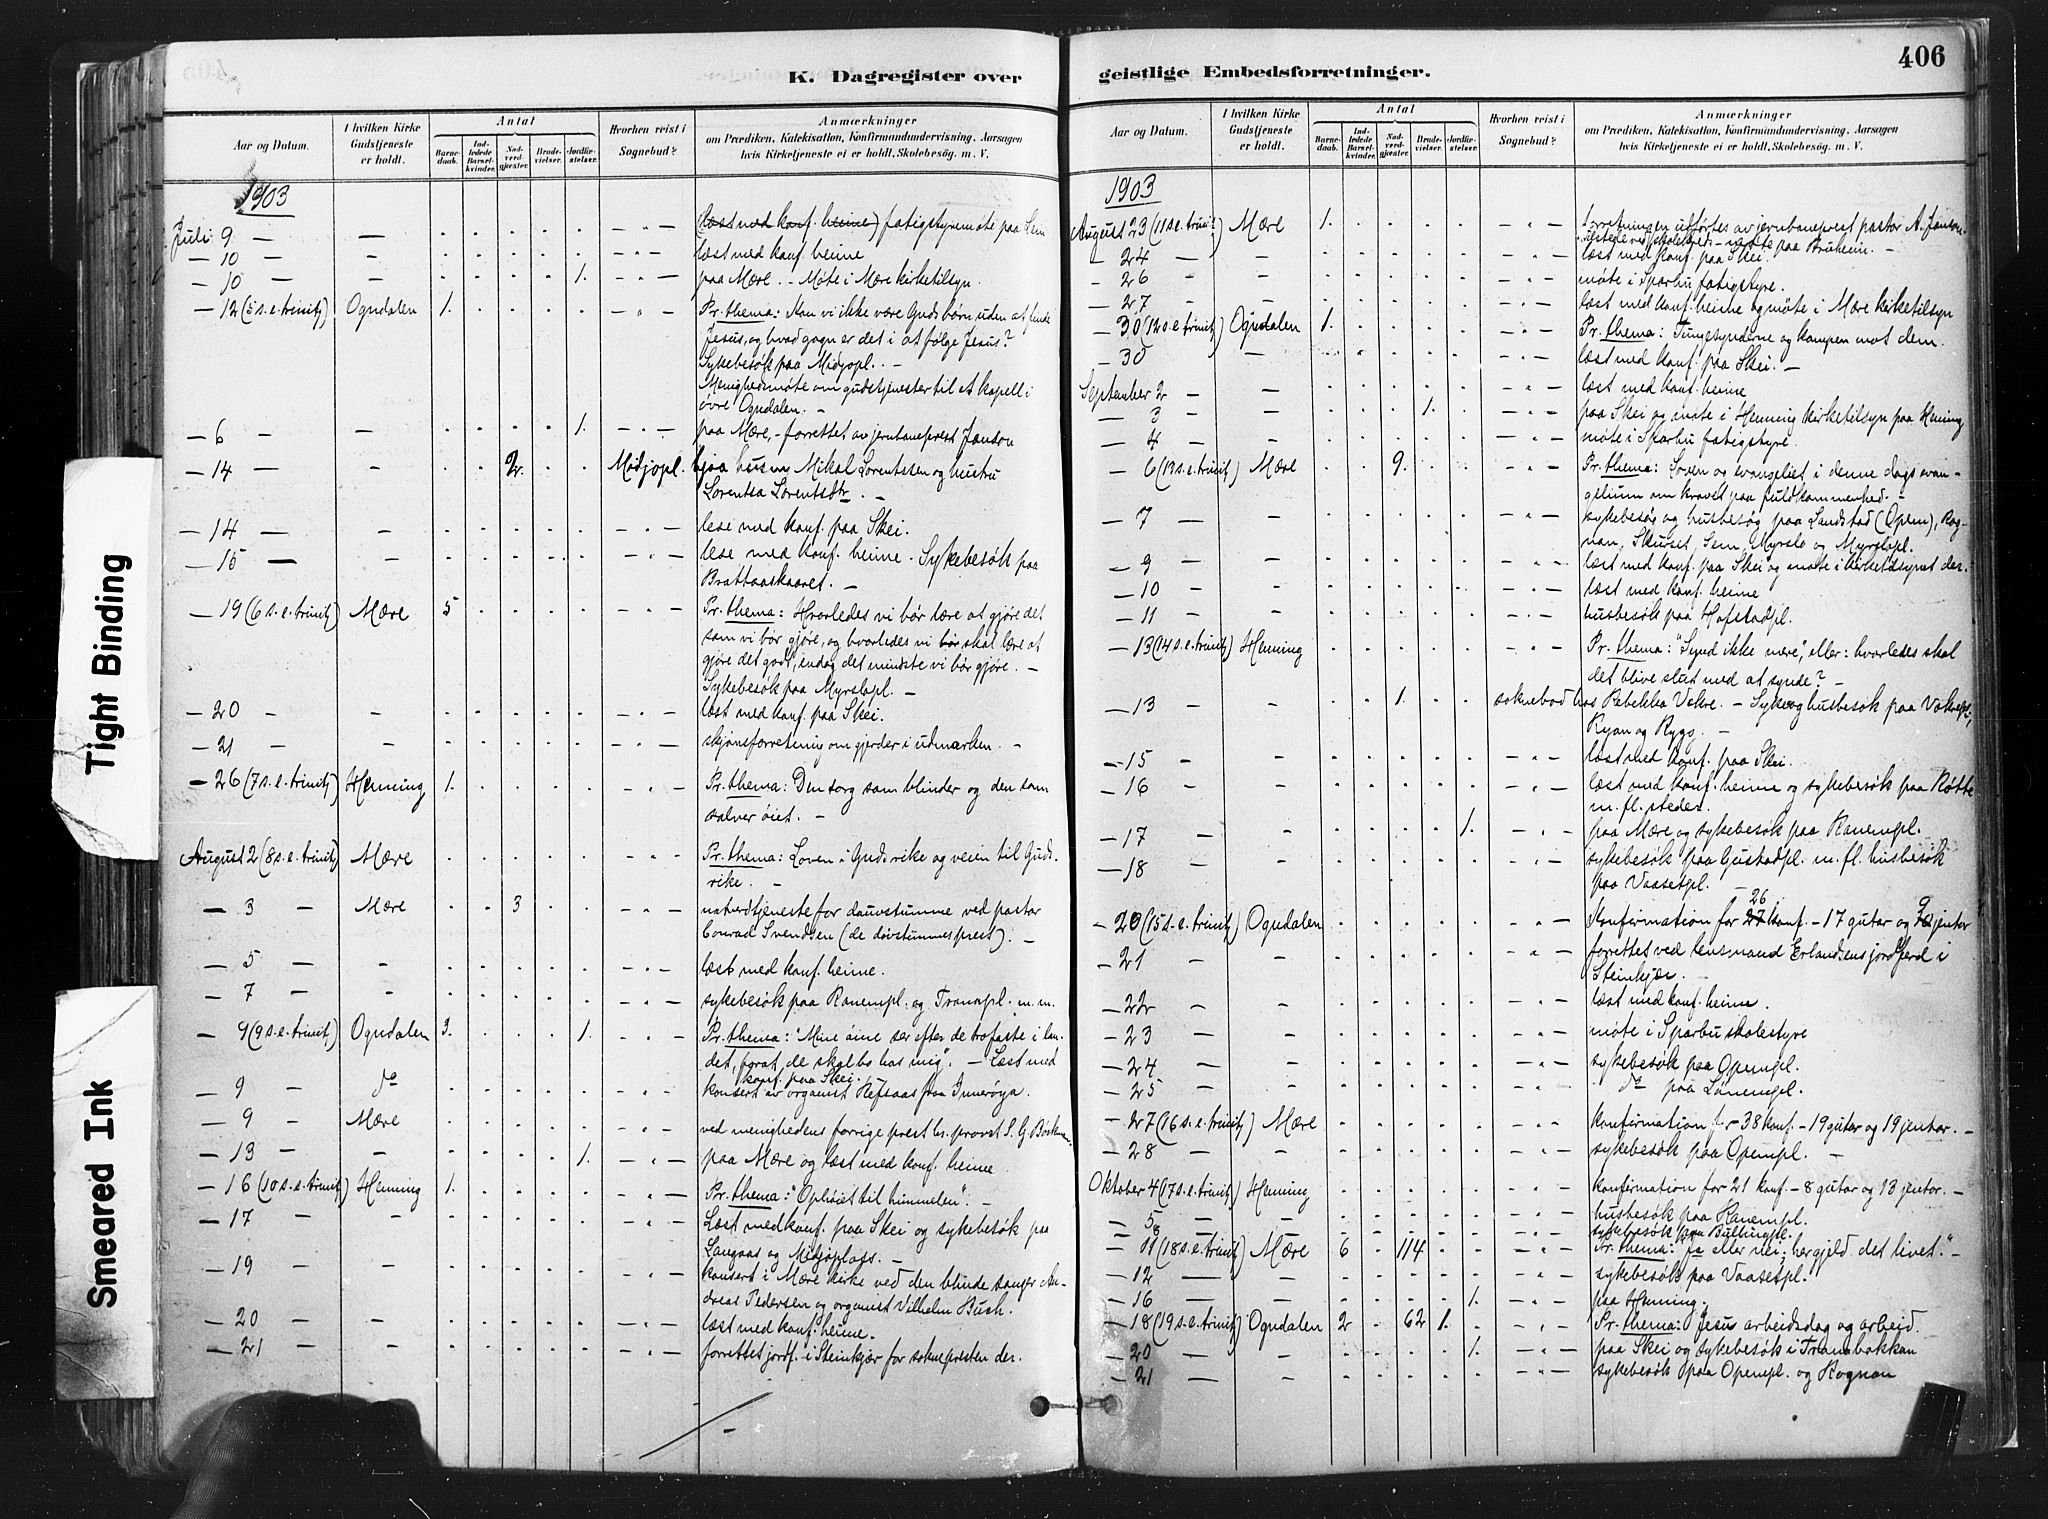 406
K. Dagregister over
geistlige Embedsforretninger.
Aar og Datum.
I hvilken Kirke Gudstjeneste er holdt.
Antal
Barnedaab.
Indledede Barselkvinder.
Nadverdgjæster.
Brudevielser.
Jordfæstelser.
Hvorhen reist i Sognebud?
Anmærkninger
om Prædiken, Katekisation, Konfirmandundervisning. Aarsagen
hvis Kirketjeneste ei er holdt. Skolebesøg. m. V.
1903
Juli 9 — — (læst med konf. heime) fatigstyremøte paa Sem
— 10 — læst med konf. heime
— 10 — 1. paa Mære. – Møte i Mære kirketilsyn.
— 12 (5 s.e. trinit) Ogndalen 1. Pr. thema: Kan vi ikke være Guds børn uden at
Jesus, og hvad gagn er det i at følge Jesus?
Sykebesök paa Midjopl. –
Menighedsmøte om gudstjenester til et kapell i
øvre Ogndalen. –
— 6 — 1. paa Mære, – forrettet av jernbaneprest Janson
— 14 — 2. Midjopl. hjaa husm Mikal Lorentssen og hustru
Lorentsa Lorentsdtr. –
— 14 — lese med konf. paa Skei.
— 15 — lese med konf. heime. Sykebesök paa
Brattaaskaaret. –
— 19 (6 s.e. trinit) Mære 5 Pr. thema: Hvorledes vi bør lære at gjøre det
som vi bør gjøre, og hvorledes vi bør skal lære at
gjøre det godt, endog det mindste vi bør gjøre. –
Sykebesök paa Myrslopl. –
— 20 — læst med konf. paa Skei.
— 21 — skjønsforretning om gjerder i udmarken. –
— 26 (7 s.e. trinit) Henning 1. Pr. thema: Den sorg som blinder og den som
salver øiet. –
August 2 (8 s.e. trinit) Mære Pr. thema: Loven i Guds rike og veien til Guds
rike. –
— 3 — Mære 3 natverdtjeneste for dauvstumme ved pastor
Conrad Svendsen (de døvstummes prest). –
— 5 — læst med konf. heime.
— 7 — sykebesök paa Ranempl. og Tranapl. m. m.
— 9 (9 s.e. trinit) Ogndalen 3. 1. Pr. thema: "Mine øine ser efter de trofaste i lan-
det, forat de skal bo hos mig". – Læst med
konf. paa Skei.
— 9 — do konsert av organist Refsaas fra Inderøya.
— 9 — Mære ved menighedens forrige prest hr. provst S. G.
— 13 — 1. paa Mære og læst med konf. heime
— 16 (10 s.e. trinit) Henning 1. Pr. thema: "Ophøiet til himmelen". –
— 17 Læst med konf. paa Skei og sykebesök paa
Langaas og Midjoplads. –
— 19 konsert i Mære kirke ved den blinde sanger An-
dreas Pedersen og organist Vilhelm Bush.
— 20 læst med konf. heime.
— 21 forrettet jordf. i Steinkjær for soknepresten der.
Aar og Datum.
I hvilken Kirke Gudstjeneste er holdt.
Antal
Barnedaab.
Indledede Barselkvinder.
Nadverdgjæster.
Brudevielser.
Jordfæstelser.
Hvorhen reist i Sognebud?
Anmærkninger
om Prædiken, Katekisation, Konfirmandundervisning. Aarsagen
hvis Kirketjeneste ei er holdt. Skolebesøg. m. V.
1903
August 23 (11 s.e. trinit) Mære 1. forretningen utførtes av jernbaneprest pastor A. Janson.
møte paa Bruheim. –
— 24 — læst med konf. paa Skei.
— 26 møte i Sparbu fatigstyre.
— 27 læst med konf. heime og møte i Mære kirketilsyn
— 30 (12 s.e. trinit) Ogndalen 1. Pr. thema: Tungesynderne og kampen mot dem.
— 30 — læst med konf. paa Skei. –
September 2 — læst med konf. heime
— 3 — 1. paa Skei og møte i Henning kirketilsyn paa Hening
— 4 — møte i Sparbu fatigstyre.
— 6 (13 s.e. trinit) Mære 9. Pr. thema: Loven og evangeliet i denne dags evan-
gelium om kravet paa fuldkommenhed. –
— 7 — sykebesøg og husbesøg paa Landstad (Opem), Rog-
nan, Skurset, Sem, Myrslo og Myrslopl.
— 9 — læst med konf. paa Skei og møte i kirketilsynet der.
— 10 læst med konf. heime
— 11 husbesök paa Hofstadpl.
— 13 (14 s.e. trinit) Henning Pr. thema: "Synd ikke mere", eller: hvorledes skal
det blive slut med at synde? –
— 13 — 1. soknebud hos Rebekka Vekre. – Syke og husbesök paa Vekrepl.,
Ryan og Rygg. –
— 15 læst med konf. paa Skei.
— 16 læst med konf. heime og sykebesök paa Røtte
m. fl. steder.
— 17 — 1. paa Mære og sykebesök paa Ranempl.
— 18 — sykebesök paa Gjustadpl. m. fl. husbesök
paa Vaasetpl. –
— 20 (15 s.e. trinit) Ogndalen Konfirmation for 26 konf. – 17 gutar og 9 jenter
— 21 forrettet ved lensmand Erlandsens jordferd i
Steinkjær. –
— 22 læst med konf. heime.
— 23 møte i Sparbu skolestyre
— 24 sykebesök paa Opempl.
— 25 do paa Lønempl.
— 27 (16 s.e. trinit) Mære konfirmation for 38 konf. – 19 gutar og 19 jentor. –
— 28 sykebesök paa Opempl. –
Oktober 4 (17 s.e. trinit) Henning konfirmation for 21 konf. – 8 gutar og 13 jentor. –
— 5 — husbesök paa Ranempl.
8 sykebesök paa
— 11 (18 s.e. trinit) Mære 6 114 Pr. thema: "Ja eller nei; her gjeld det livet." –
— 12 — sykebesök paa Vaasetpl.
— 16 — 1. paa Henning.
— 18 (19 s.e. trinit) Ogndalen 2 62 1. Pr. thema: Jesu arbeidsdag og arbeid.
— 20 — 1. paa Skei og sykebesök i Tranabakkan
— 21 sykebesök paa Opempl. og Rognan
Tight Binding
Smeared Ink